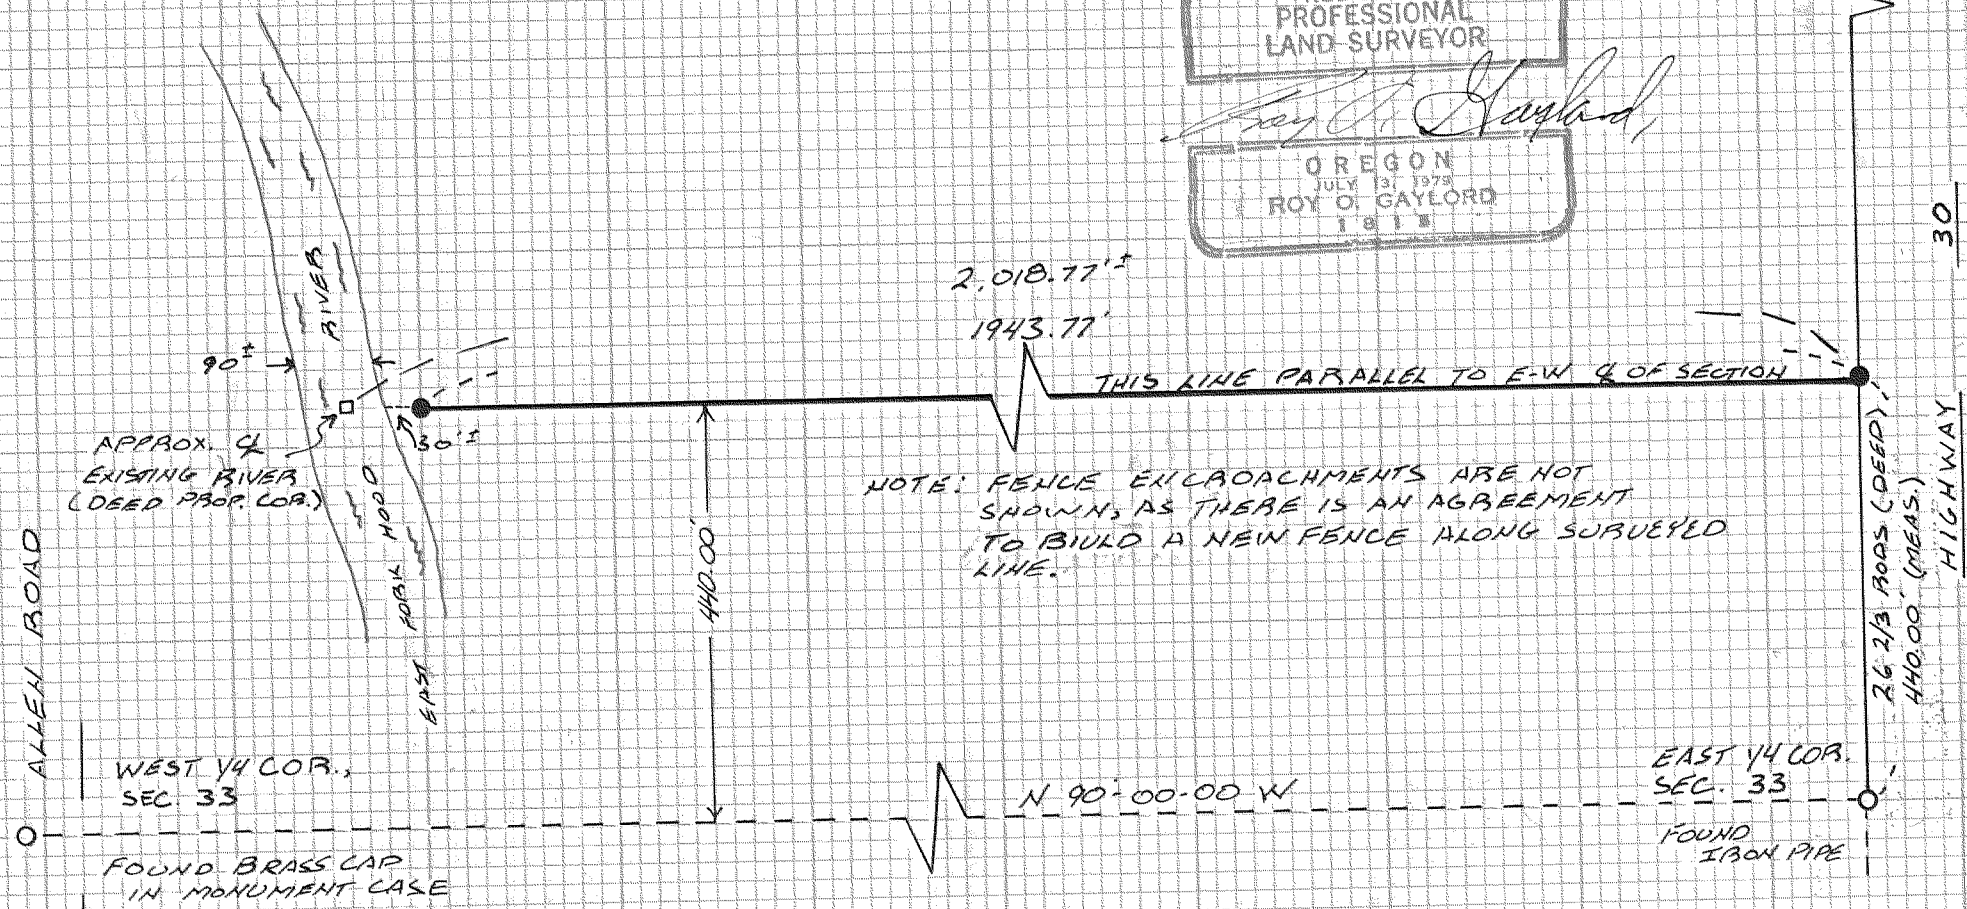 PROFESSIONAL
LAND SURVEYOR
Roy O. Gaylord
OREGON
JULY 13, 1979
ROY O. GAYLORD
2,018.77'±
1943.77'
THIS LINE PARALLEL TO E-W ℄ OF SECTION
30
HIGHWAY
RIVER
90±
30'±
APPROX. ℄
EXISTING RIVER
(DEED PROP. COR.)
EAST FORK HOOD
440.00'
NOTE: FENCE ENCROACHMENTS ARE NOT
SHOWN, AS THERE IS AN AGREEMENT
TO BIULD A NEW FENCE ALONG SURVEYED
LINE.
26 2/3 RODS (DEED)
440.00' (MEAS.)
ALLEN ROAD
WEST 1/4 COR.,
SEC 33
N 90-00-00 W
EAST 1/4 COR.
SEC. 33
FOUND BRASS CAP
IN MONUMENT CASE
FOUND
IRON PIPE